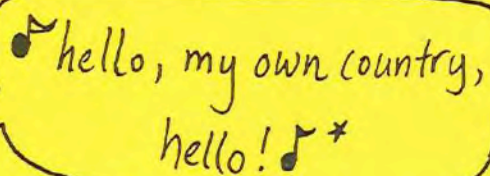 ♪hello, my own country,
hello!♪*